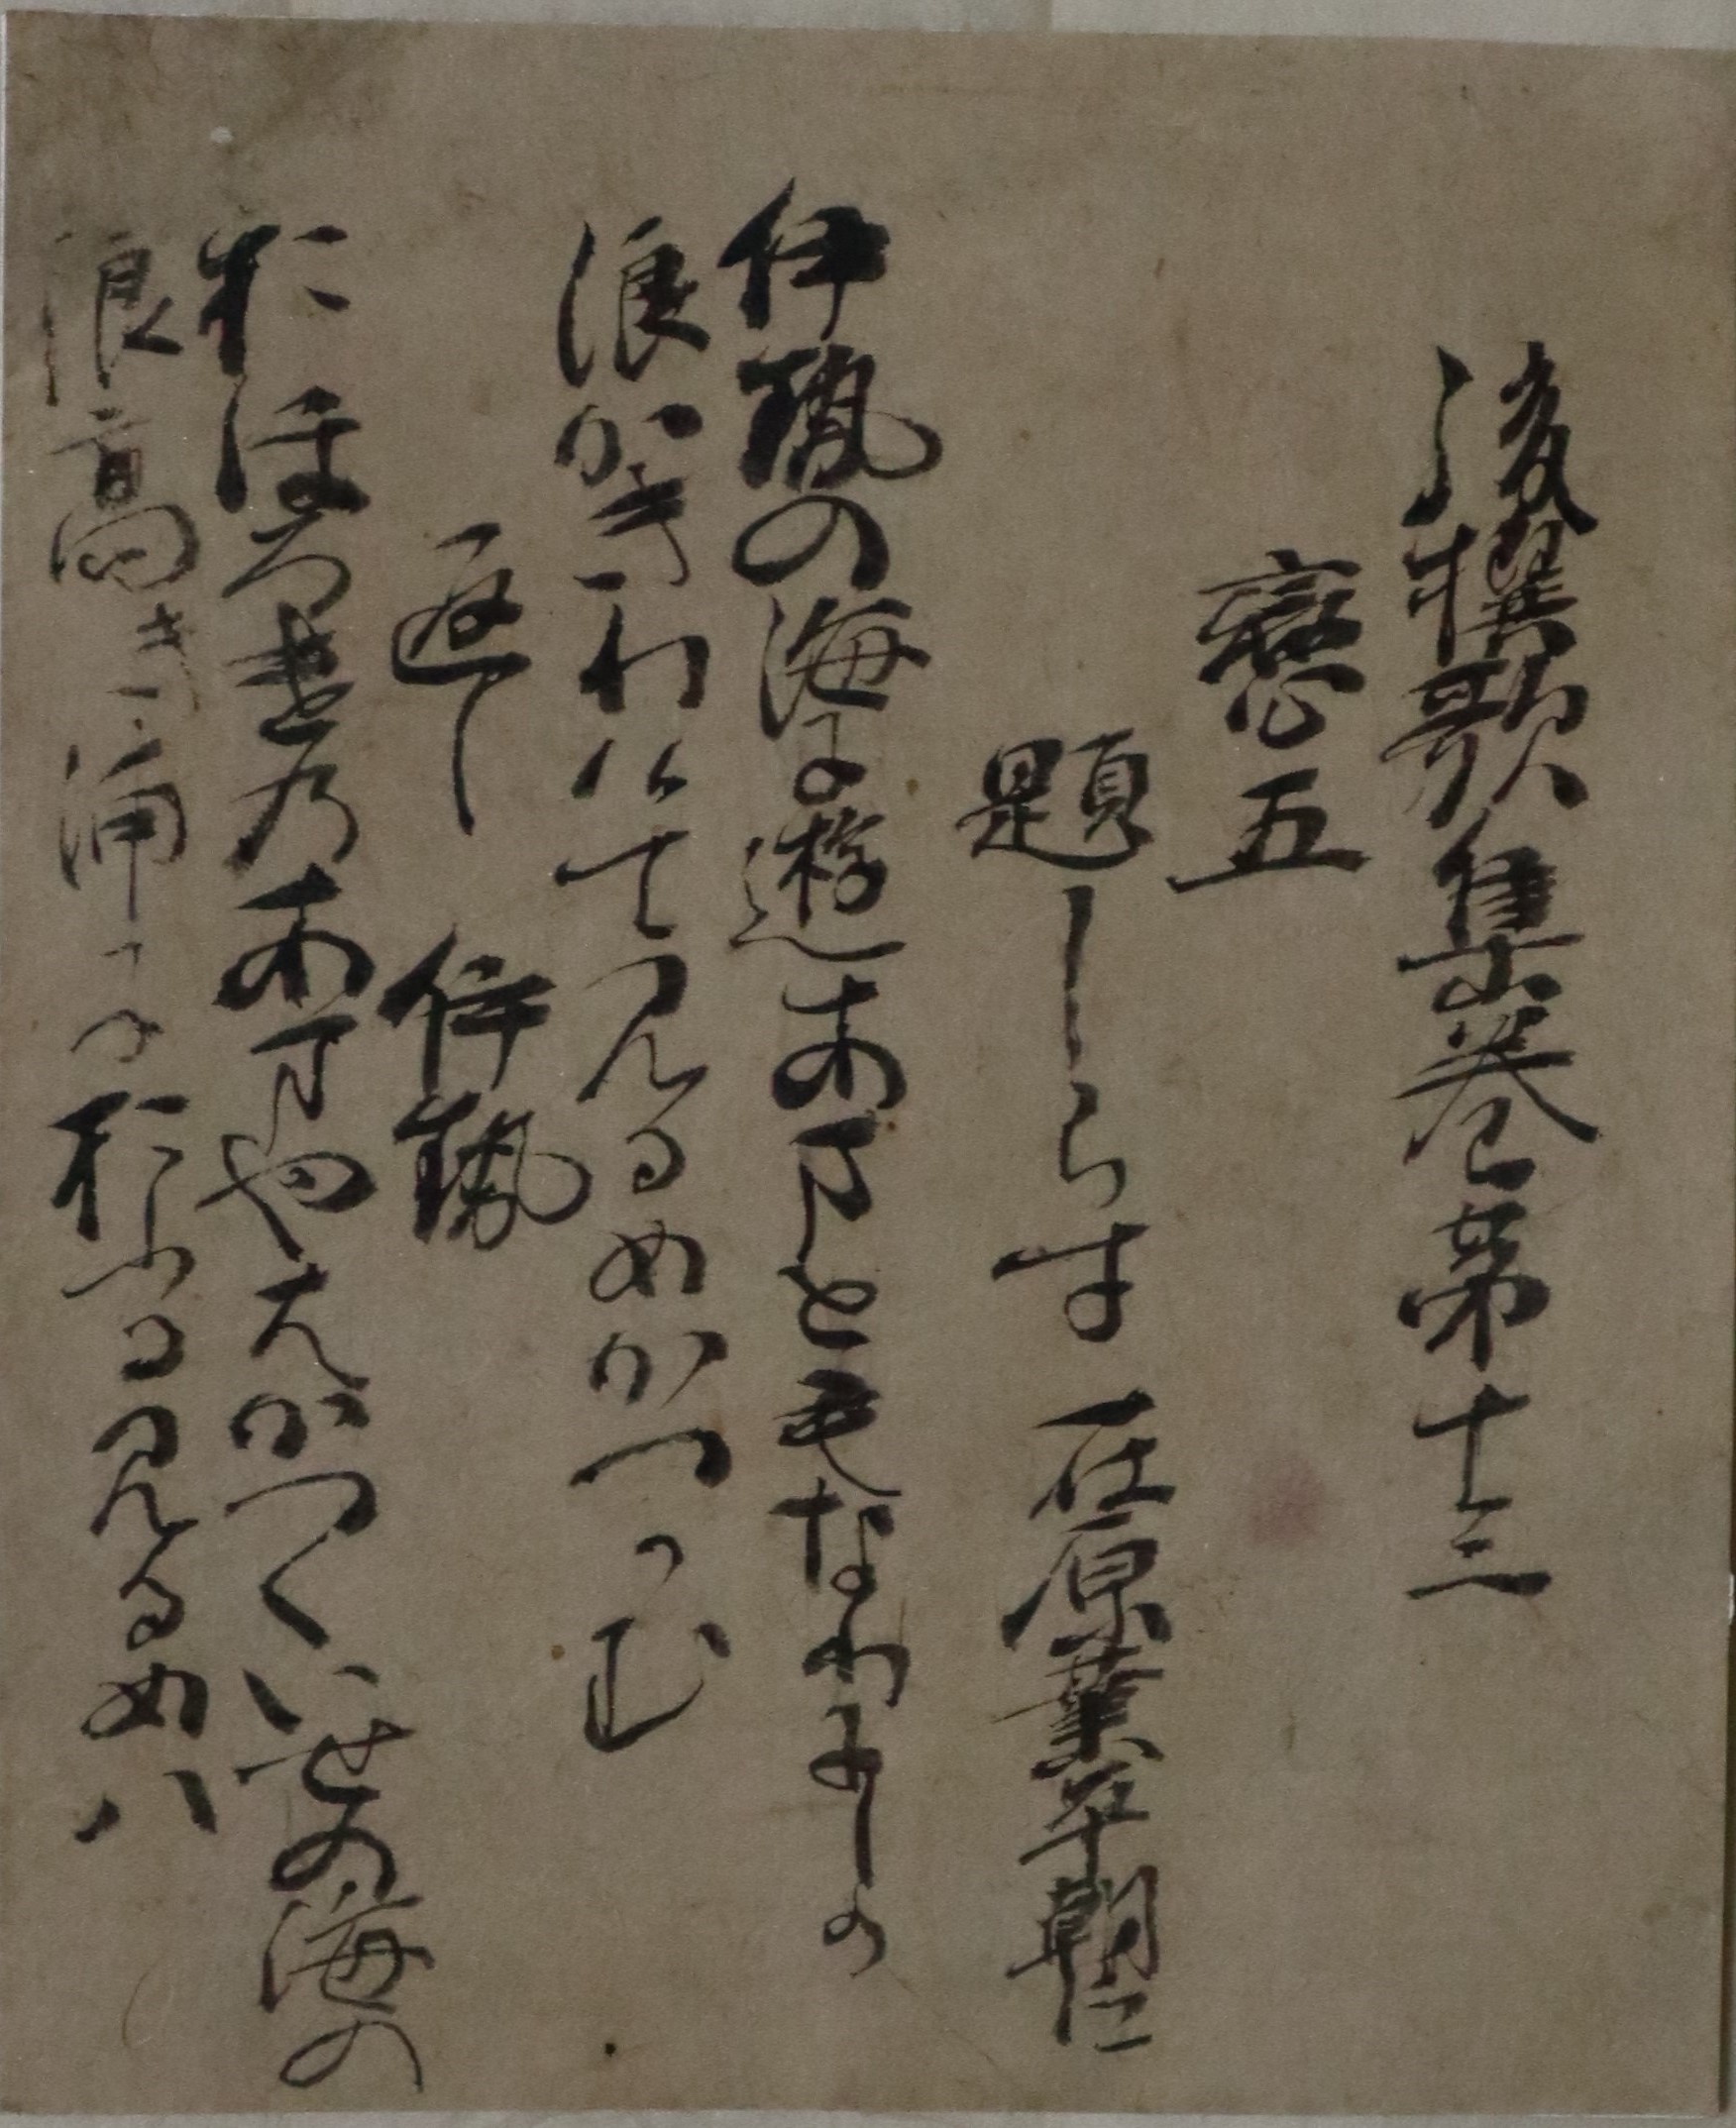 後撰歌集巻第十三
戀五
題しらす 在原業平朝臣
伊勢の海に遊あまともなりにしか
浪かきわけてみるめかつかむ
返し 伊勢
おほろけのあまやはかつくいせの海の
浪高き浦におふるみるめハ